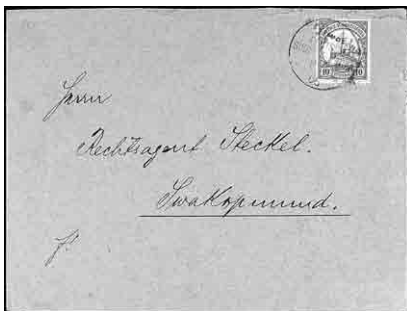 10 10
Herrn
Rechtsagent Steckel.
Swakopmund.